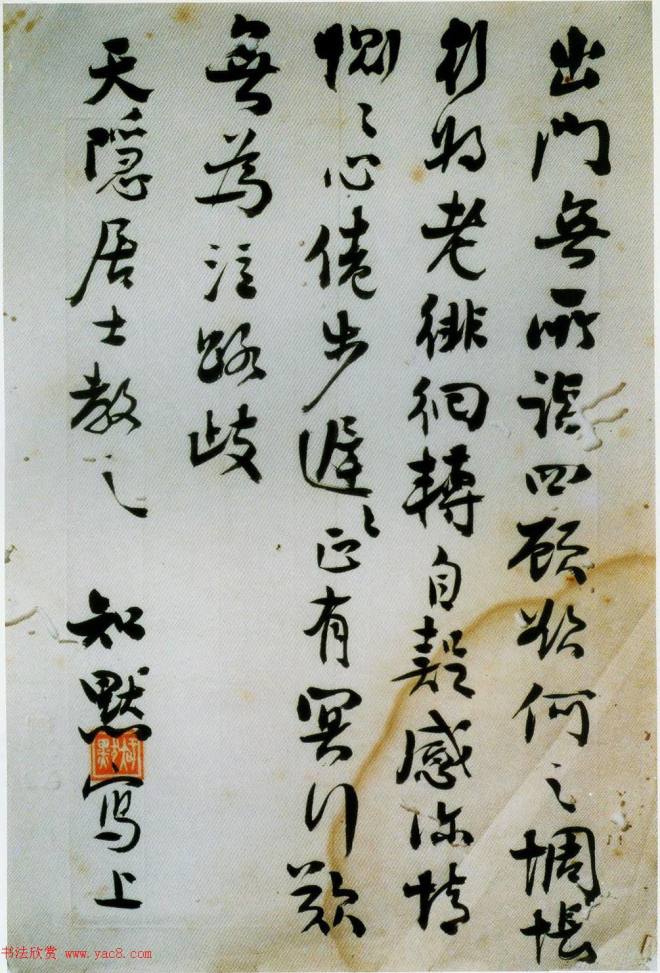 出門無所詣四顧欲何之惆悵
行將老徘徊轉自疑感深情
惻〻心倦步遲〻正有冥行歎
無為泣路歧
天隱居士教之 知默寫上
书法欣赏 www.yac8.com